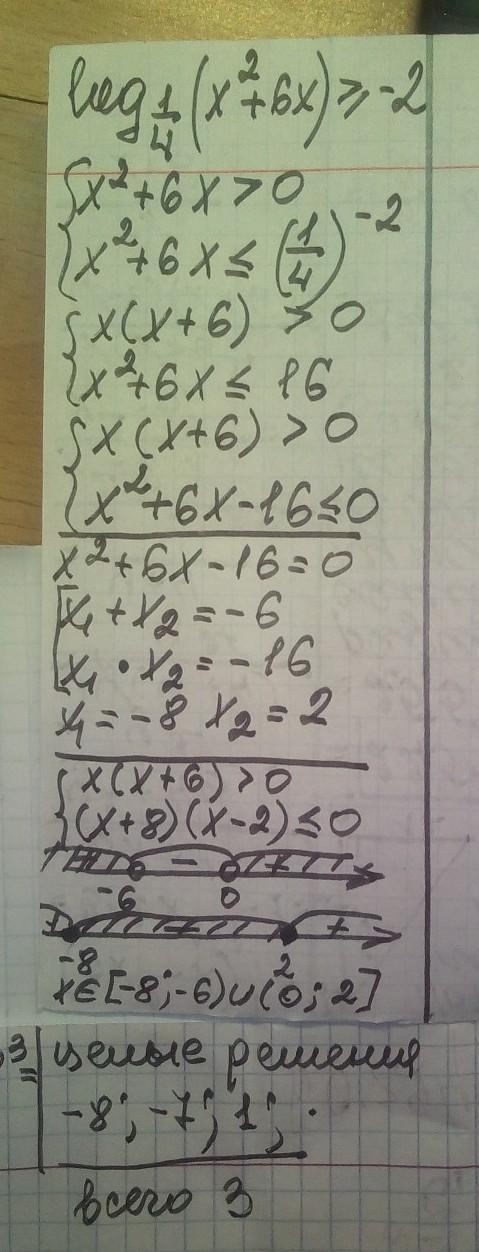 log_{1/4}(x²+6x) ≥ -2
{ x²+6x > 0
{ x²+6x ≤ (1/4)^{-2}
{ x(x+6) > 0
{ x²+6x ≤ 16
{ x(x+6) > 0
{ x²+6x-16 ≤ 0
x²+6x-16=0
[ x₁+x₂=-6
[ x₁•x₂=-16
x₁=-8 x₂=2
{ x(x+6)>0
{ (x+8)(x-2)≤0
- +
-6 0
+ - +
-8 2
x∈[-8;-6)∪(0;2]
3 целые решения
-8; -7; 1; .
всего 3